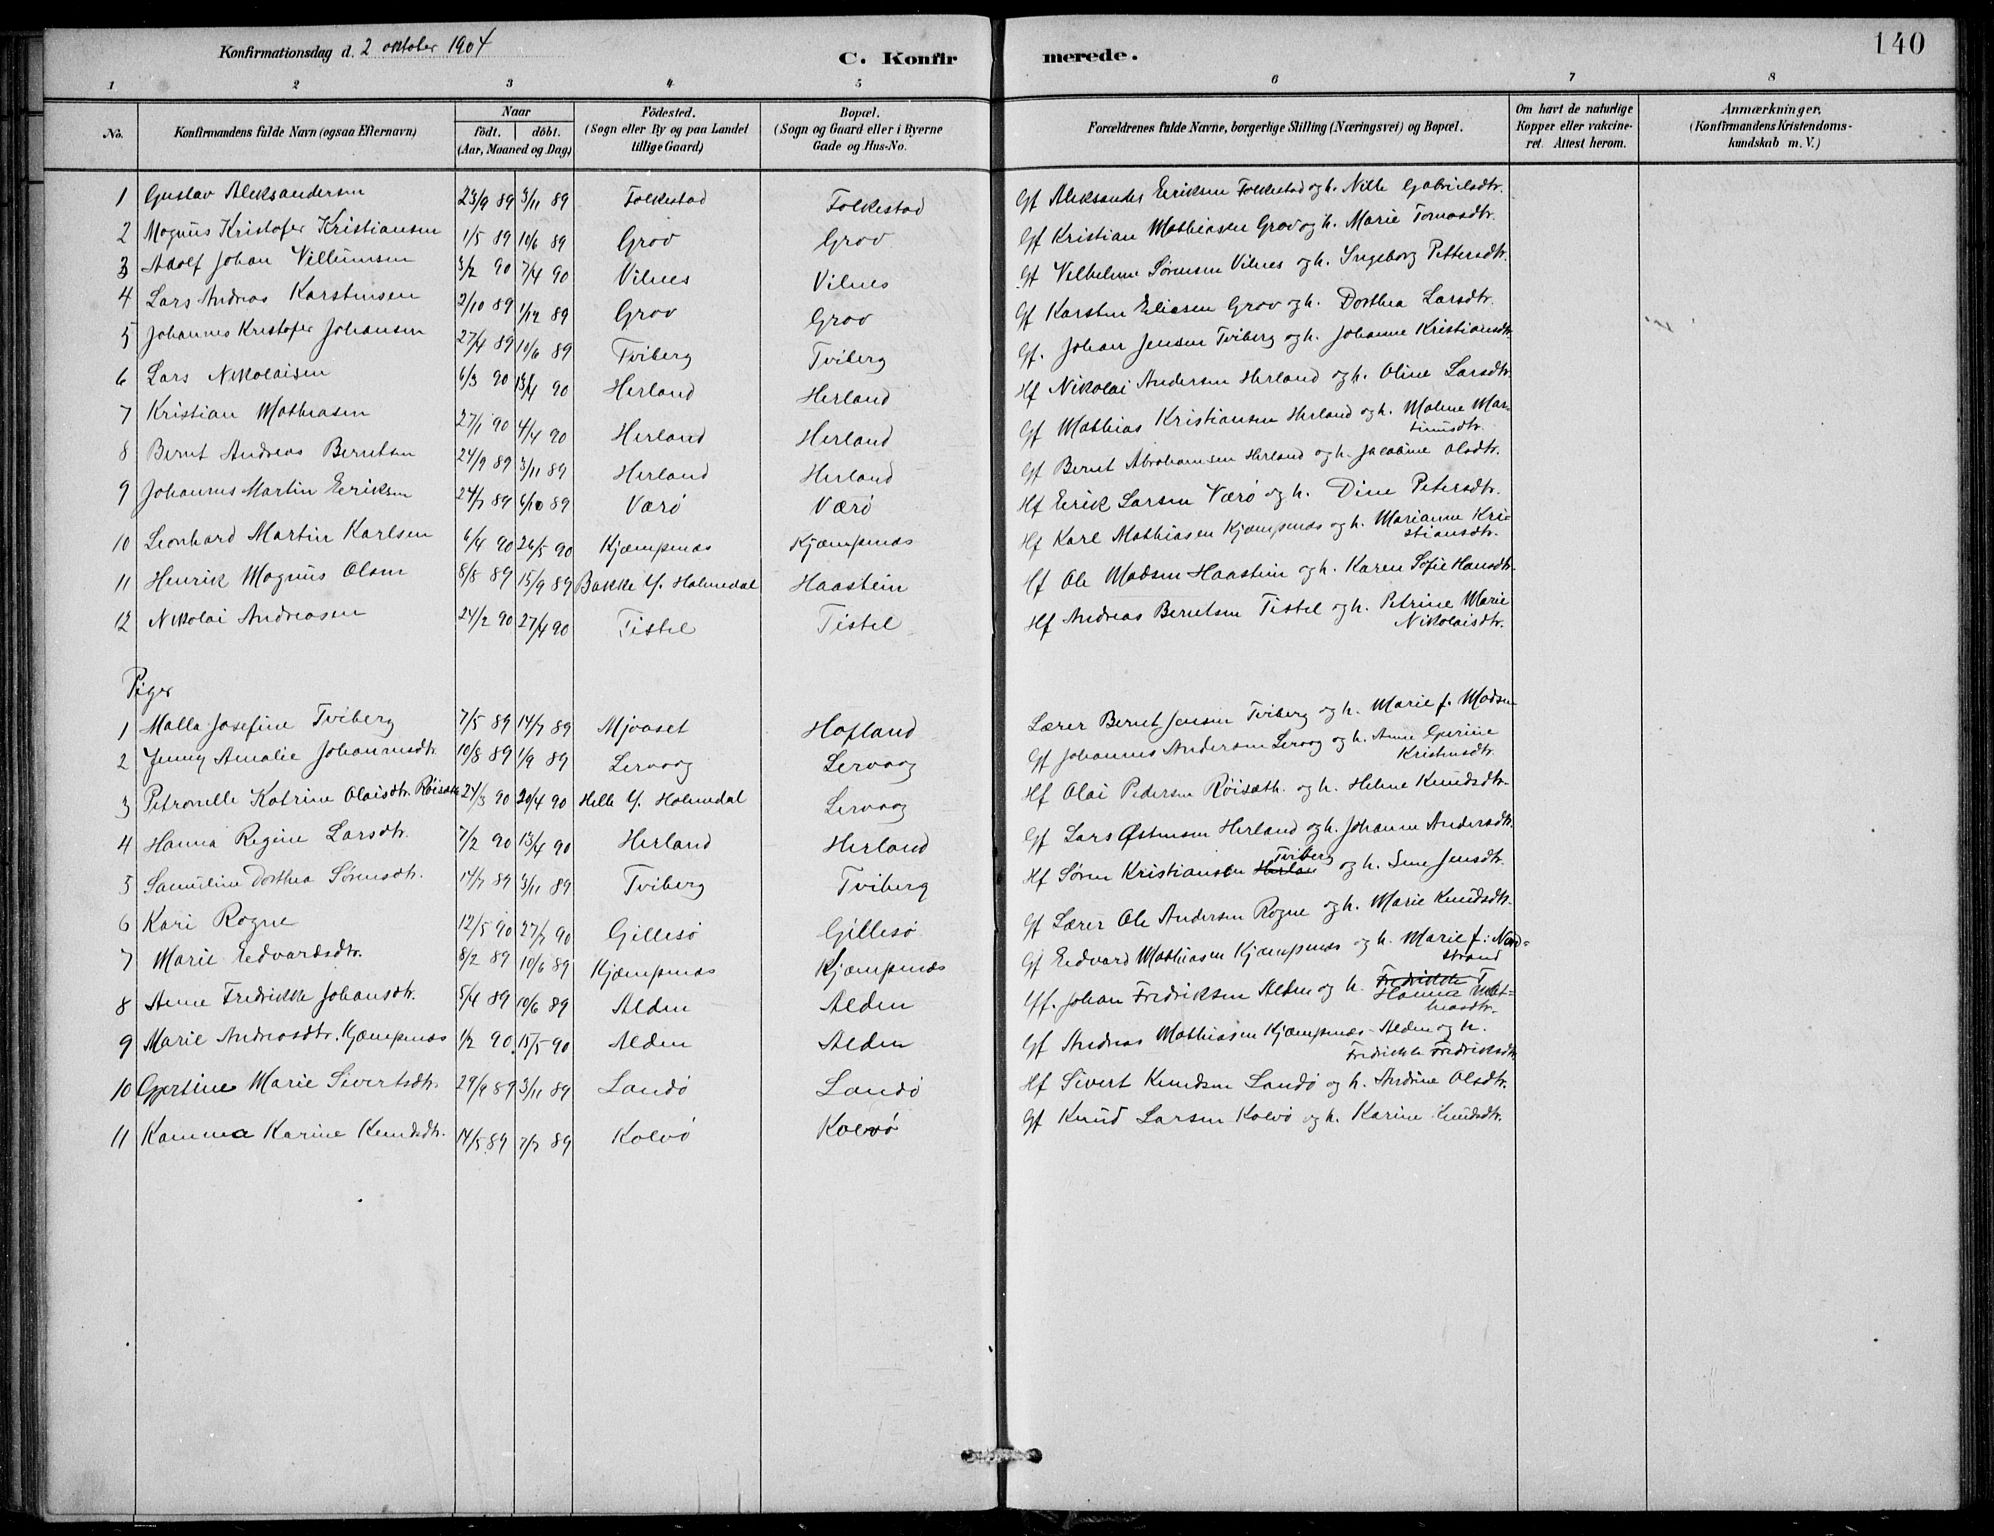 Konfirmationsdag d. 2 oktober 1904
C. Konfirmerede.
140
1 2 3 4 5 6 7 8
No.
Konfirmandens fulde Navn (ogsaa Efternavn)
Naar
födt. döbt.
(Aar, Maaned og Dag)
Födested.
(Sogn eller By og paa Landet
tillige Gaard)
Bopæl.
(Sogn og Gaard eller i Byerne
Gade og Hus-No.
Forældrenes fulde Navne, borgerlige Stilling (Næringsvei) og Bopæl.
Om havt de naturlige
Kopper eller vakcine-
ret. Attest herom.
Anmærkninger,
(Konfirmandens Kristendoms-
kundskab m. V.)
1 Gustav Aleksandersen 23/9 89 3/11 89 Folkestad Folkestad Gf Aleksander Eriksen Folkestad og h. Nille Gabrielsdtr.
2 Magnus Kristofer Kristiansen 1/5 89 10/6 89 Grov Grov Gf Kristian Mathiasen Grov og h. Marie Tomasdtr.
3 Adolf Johan Villumsen 3/2 90 7/4 90 Vilnes Vilnes Gf Vilhelm Sørensen Vilnes og h. Ingeborg Pettersdtr.
4 Lars Andreas Karstensen 2/10 89 1/12 89 Grov Grov Gf Karsten Eliasen Grov og h. Dorthea Larsdtr.
5 Johannes Kristofer Johansen 27/4 89 10/6 89 Tviberg Tviberg Gf. Johan Jensen Tviberg og h. Johanne Kristiansdtr.
6 Lars Nikolaisen 6/3 90 13/4 90 Herland Herland Hf Nikolai Andersen Herland og h. Oline Larsdtr.
7 Kristian Mathiasen 27/1 90 4/4 90 Herland Herland Gf Mathias Kristiansen Herland og h. Malene Mar-
tinusdtr.
8 Bernt Andreas Berntsen 24/9 89 3/11 89 Herland Herland Gf Bernt Abrahamsen Herland og h. Jacobine Olsdtr.
9 Johannes Martin Eriksen 24/7 89 6/10 89 Værø Værø Hf Eirik Larsen Værø og h. Dine Petersdtr.
10 Leonhard Martin Karlsen 6/4 90 26/5 90 Kjæmpenæs Kjæmpenæs Hf Karl Mathiasen Kjæmpenæs og h. Marianne Kri-
stiansdtr.
11 Henrik Magnus Olsen 8/8 89 15/9 89 Bakke Y. Holmedal Haastein Hf Ole Madsen Haastein og h. Karen Sofie Hansdtr.
12 Nikolai Andreassen 24/2 90 27/4 90 Tistel Tistel Hf Andreas Berntsen Tistel og h. Petrine Marie
Nikolaisdtr.
Piger
1 Malla Josefine Tviberg 7/5 89 14/7 89 Mjvaset Hofland Lærer Bernt Jensen Tviberg og h. Marie f. Madsen
2 Jenny Amalie Johannesdtr. 10/8 89 1/9 89 Lervaag Lervaag Gf Johannes Andersen Lervaag og h. Anne Gurine
Kristensdtr.
3 Petronelle Katrine Olaisdtr. Røisæth 24/3 90 20/4 90 Helle Y. Holmedal Lervaag Hf Olai Pedersen Røisæth. og h. Helene Knudsdtr.
4 Hanna Regine Larsdtr. 7/2 90 13/4 90 Herland Herland Gf Lars Østensen Herland og h. Johanne Andersdtr.
5 Samuline Dorthea Sørensdtr. 14/7 89 3/11 89 Tviberg Tviberg Hf Søren Kristiansen Herland Tviberg og h. Sine Jensdtr.
6 Kari Rogne 12/5 90 27/7 90 Gillesø Gillesø Gf Lærer Ole Andersen Rogne og h. Marie Knudsdtr.
7 Marie Edvardsdtr. 8/2 89 10/6 89 Kjæmpenæs Kjæmpenæs Gf Edvard Mathiasen Kjæmpenæs og h. Marie f: Nord-
strand
8 Anne Fredrikke Johansdtr. 5/4 89 10/6 89 Alden Alden Hf. Johan Fredriksen Alden og h. Fredrikke Hanna Mat-
hiasdtr.
9 Marie Andreasdtr. Kjæmpenæs 1/2 90 15/5 90 Alden Alden Gf Andreas Mathiasen Kjæmpenæs-Alden og h.
Fredrikke Fredriksdtr.
10 Gjertine Marie Sivertsdtr. 29/9 89 3/11 89 Landø Landø Hf Sivert Knudsen Landø og h. Andrine Olsdtr.
11 Kamma Karine Knudsdtr. 14/5 89 7/7 89 Kolvø Kolvø Gf Knud Larsen Kolvø og h. Karine Knudsdtr.